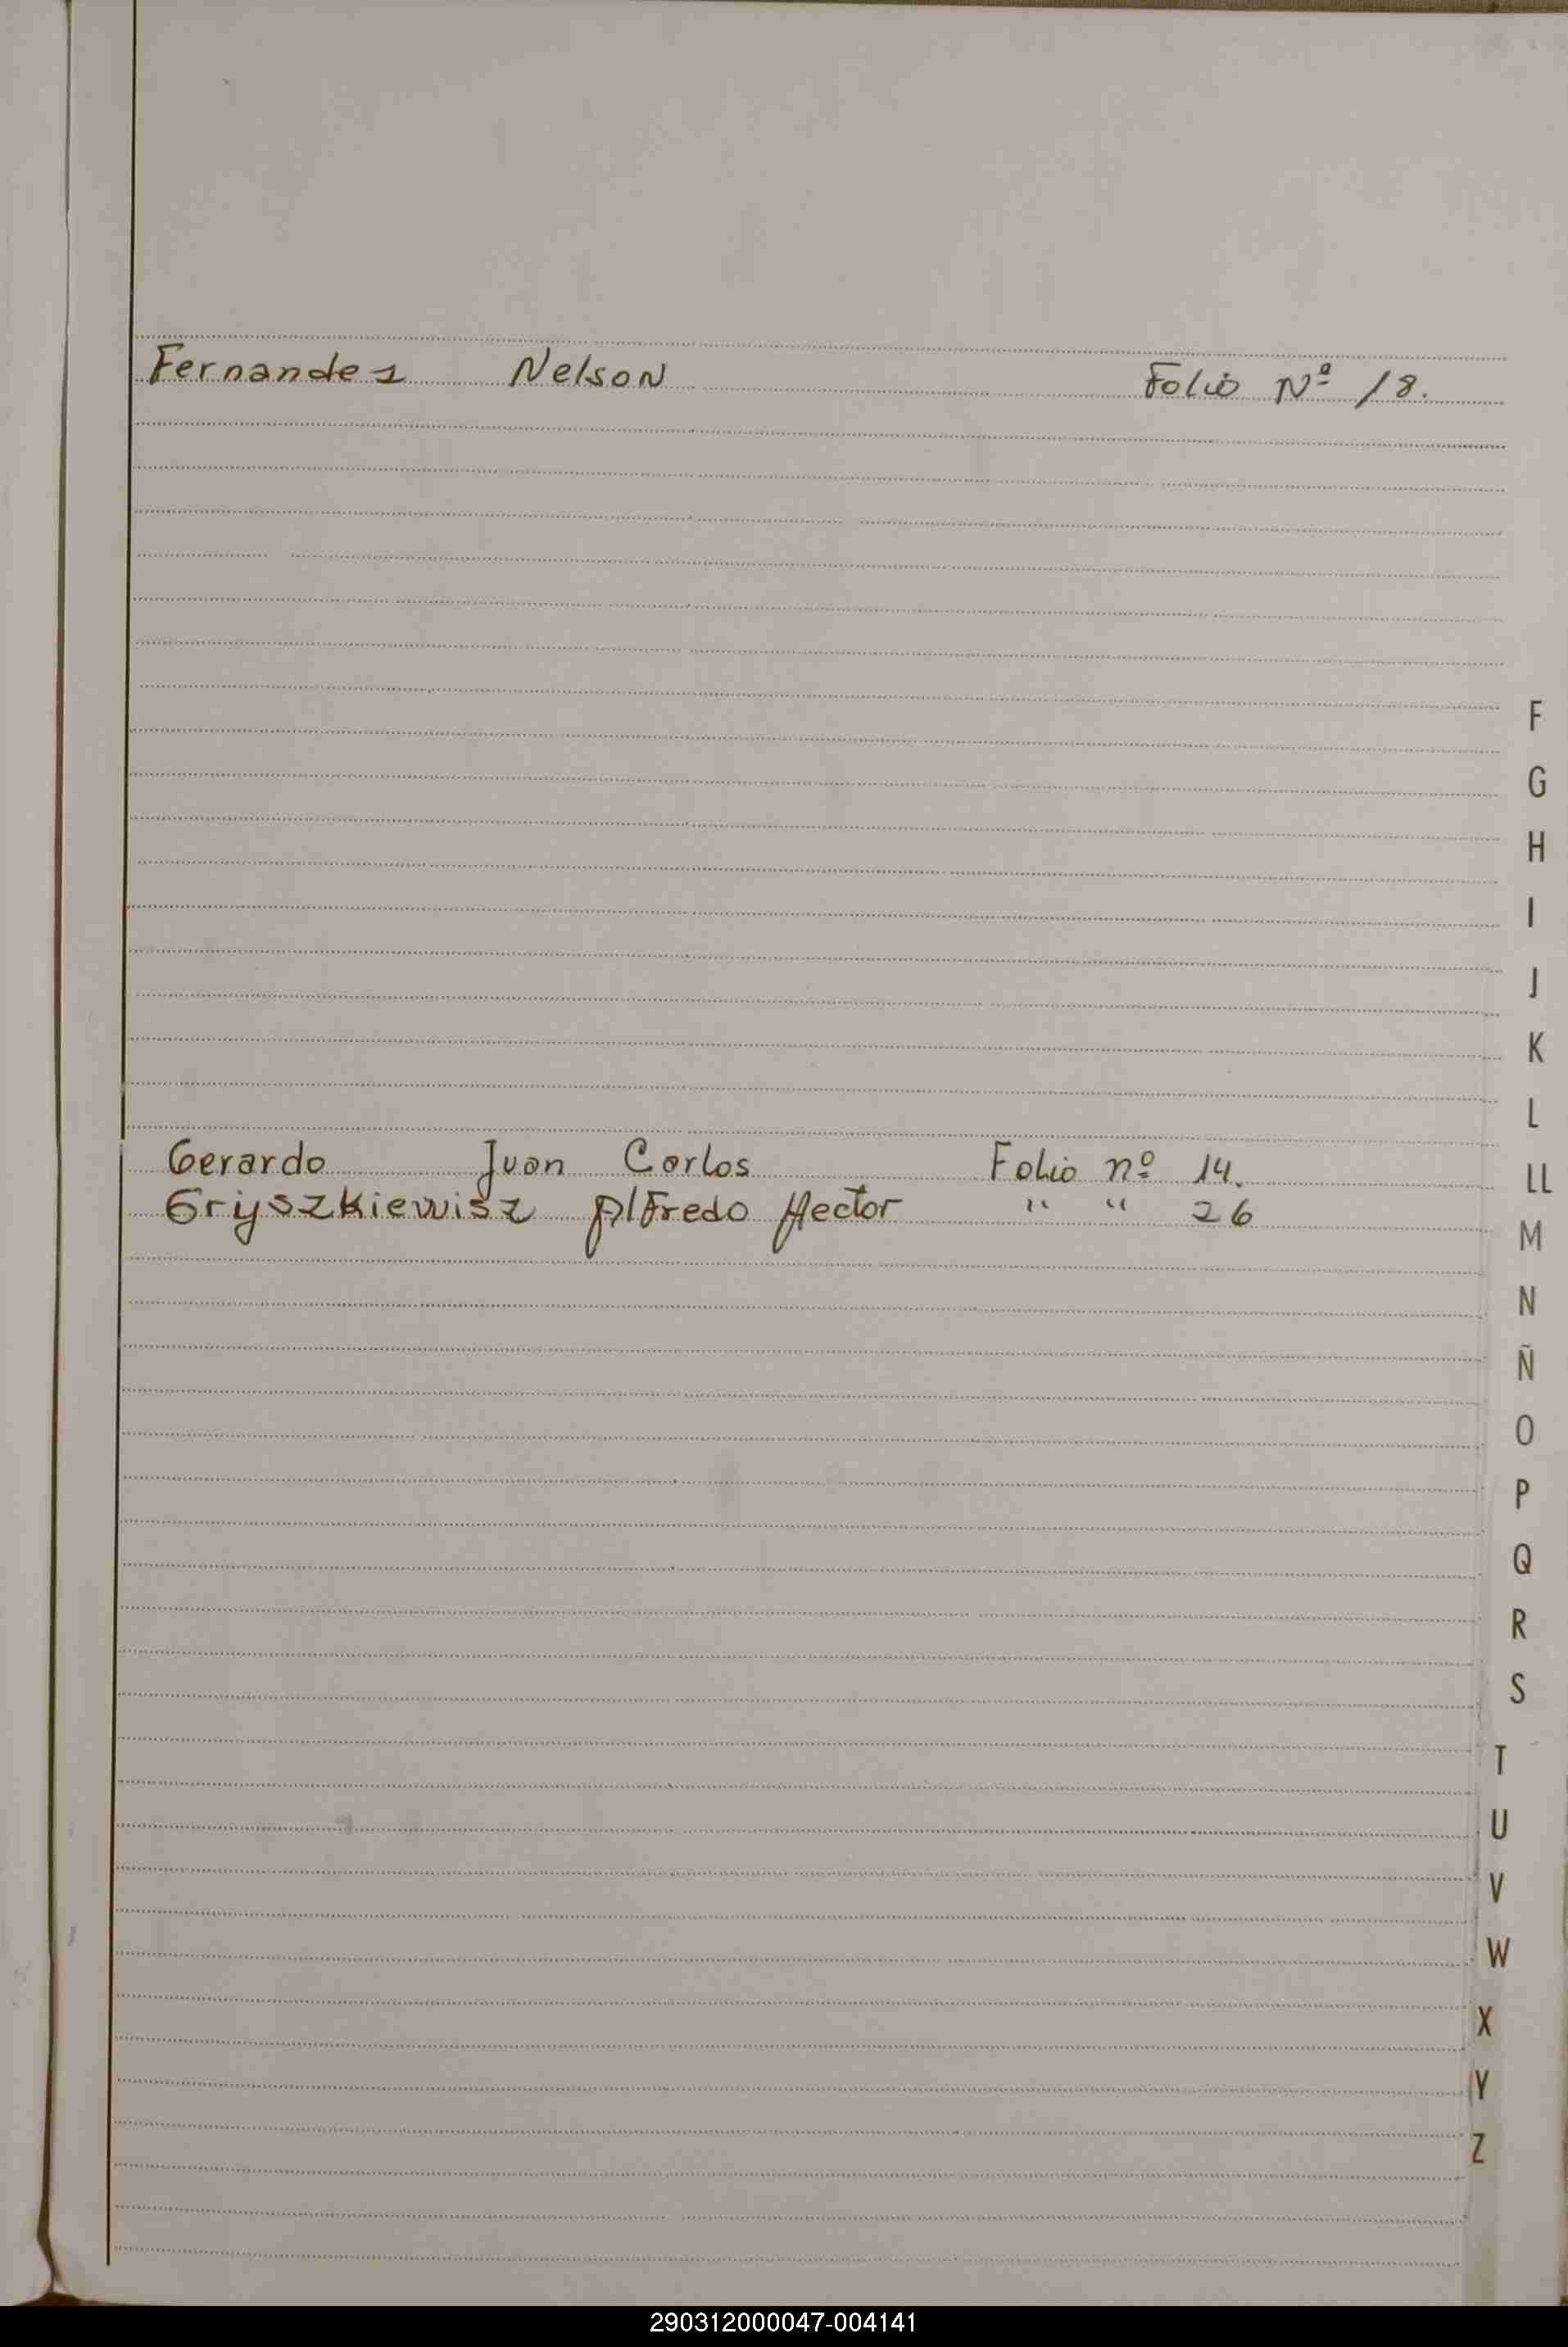 Fernandez Nelson Folio Nº 18.
F
G
H
I
J
K
L
Gerardo Juan Carlos Folio nº 14.
LL
Gryszkiewisz Alfredo Hector " " 26
M
N
Ñ
O
P
Q
R
S
T
U
V
W
X
Y
Z
290312000047-004141